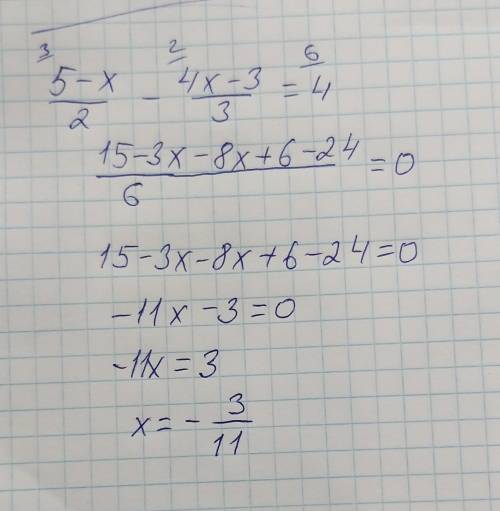 3 2 6
(5-x)/2 - (4x-3)/3 = 4
(15-3x-8x+6-24)/6 = 0
15-3x-8x+6-24=0
-11x-3=0
-11x=3
x=-3/11